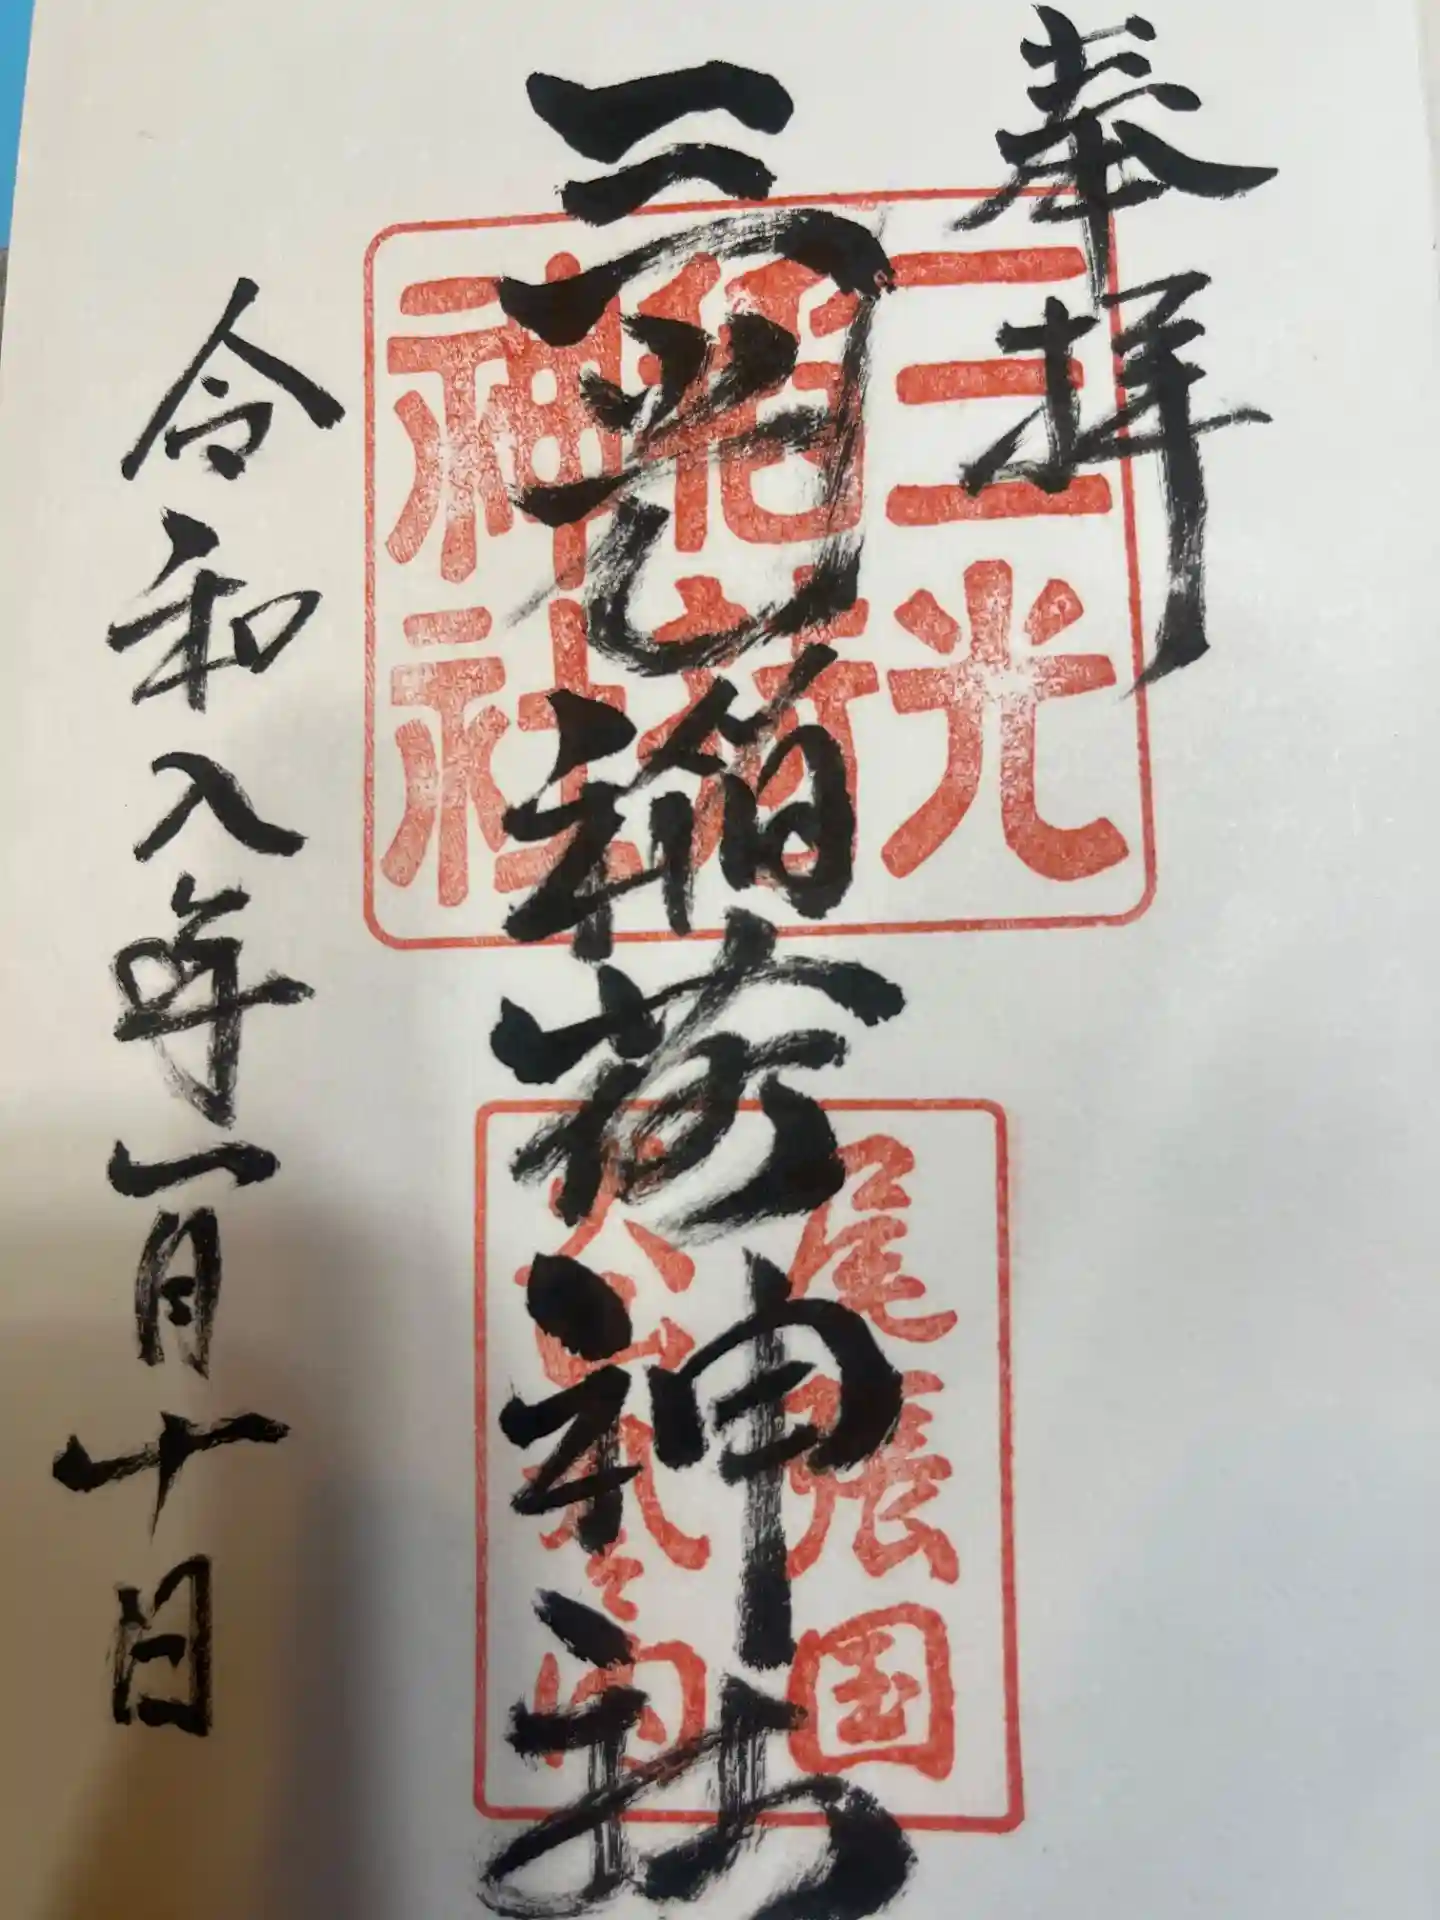 奉拝
三光稲荷神社
令和八年一月十日
三光
稲荷
神社
尾張国
犬山城之内